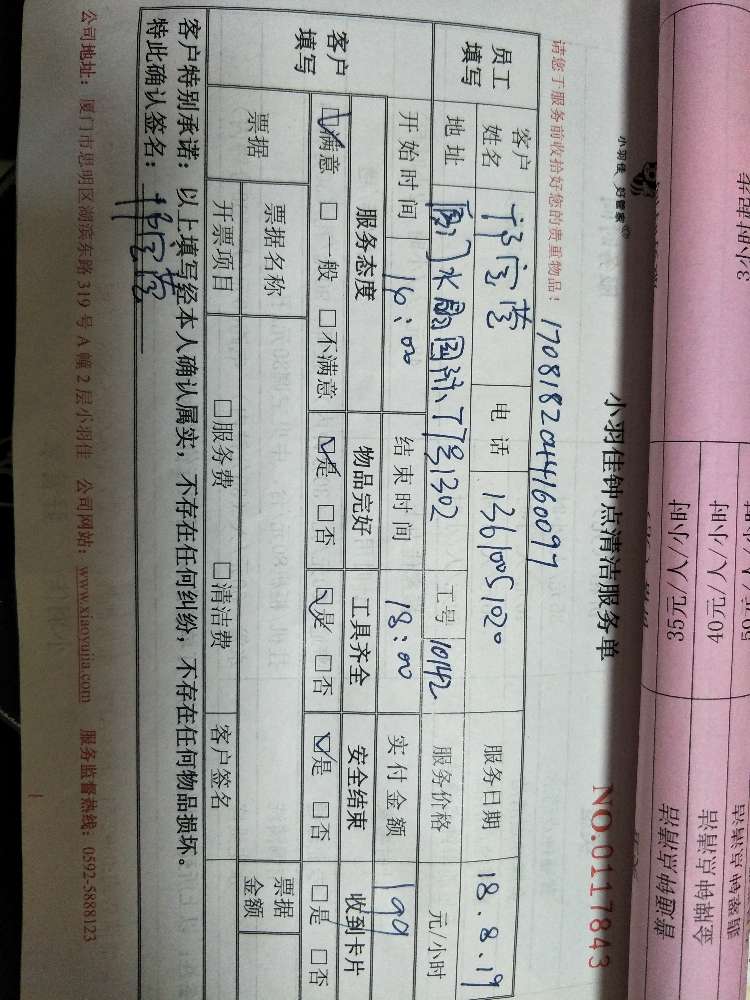 小羽佳 好管家
小羽佳钟点清洁服务单
NO.0117843
请您于服务前收拾好您的贵重物品！
170818204416009
员工填写
客户姓名
电话 13610051020
服务日期 18.8.19
地址
1302
工号 10142
服务价格 元/小时
开始时间 14:00
结束时间 18:00
实付金额 199
客户填写
服务态度 物品完好 工具齐全 安全结束 收到卡片
☑满意 □一般 □不满意 ☑是 □否 ☑是 □否 ☑是 □否 □是 □否
票据 票据名称 票据金额
开票项目 □服务费 □清洁费 客户签名
客户特别承诺：以上填写经本人确认属实，不存在任何纠纷，不存在任何物品损坏。
特此确认签名：
公司地址：厦门市思明区湖滨东路319号A幢2层小羽佳 公司网站：www.xiaoyujia.com 服务监督热线：0592-5888123
35元/人/小时
40元/人/小时